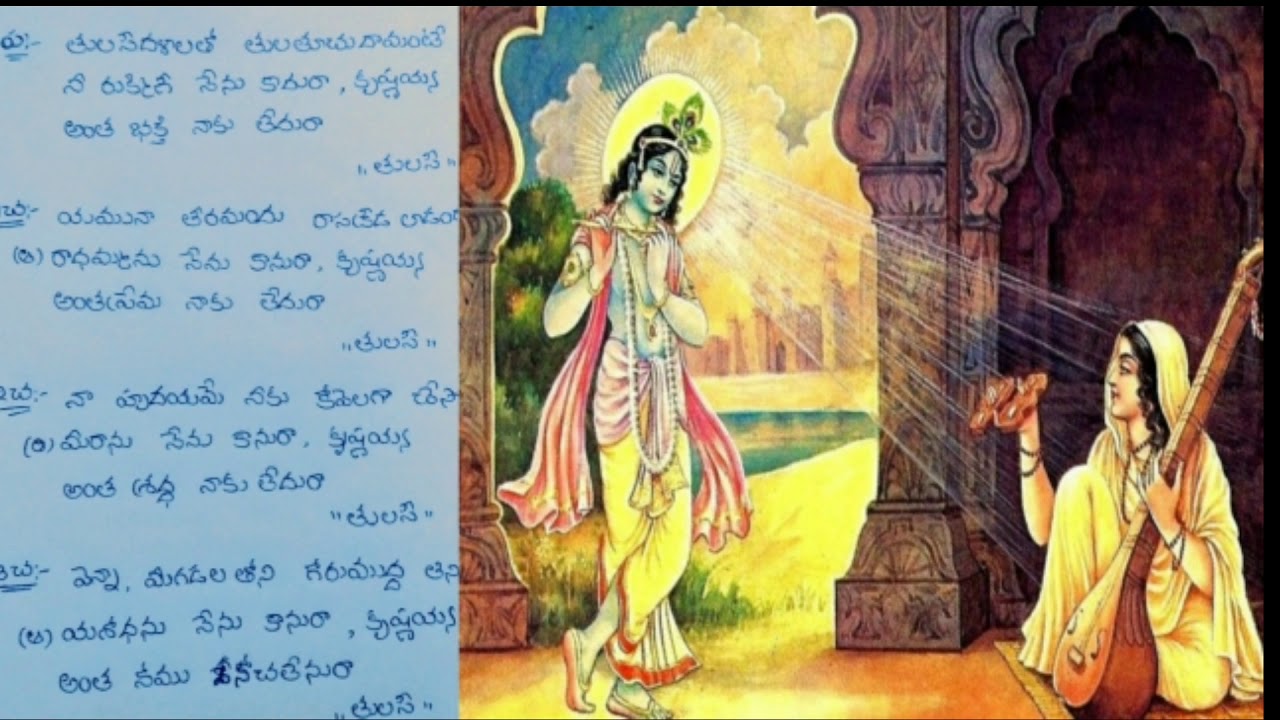 రు:- తులసీదళాలతో తులతూచుదామంటే
నీ రుక్మిణీ నేను కానురా, కృష్ణయ్య
అంత భక్తి నాకు లేదురా
"తులసీ"
చ:- యమునా తీరమందు రాసక్రీడ లాడంగ
(ఆ) రాధమ్మను నేను కానురా, కృష్ణయ్య
అంత ప్రేమ నాకు లేదురా
"తులసీ"
చ:- నా హృదయమే నీకు కోవెలగా చేసి
(ఆ) మీరాను నేను కానురా, కృష్ణయ్య
అంత శ్రద్ధ నాకు లేదురా
"తులసీ"
చ:- వెన్నా, మీగడల తోని గోరుముద్ద తిని
(ఆ) యశోదను నేను కానురా, కృష్ణయ్య
అంత నేను
"తులసీ"